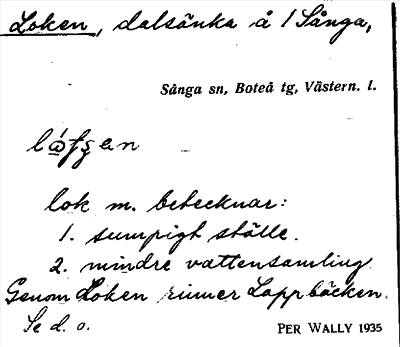 Loken, dalsänka å 1 Sånga,
Sånga sn, Boteå tg, Västern. l.
lok m. betecknar:
1. sumpigt ställe.
2. mindre vattensamling
Genom Loken rinner Lappbäcken.
Se d. o.
PER WALLY 1935